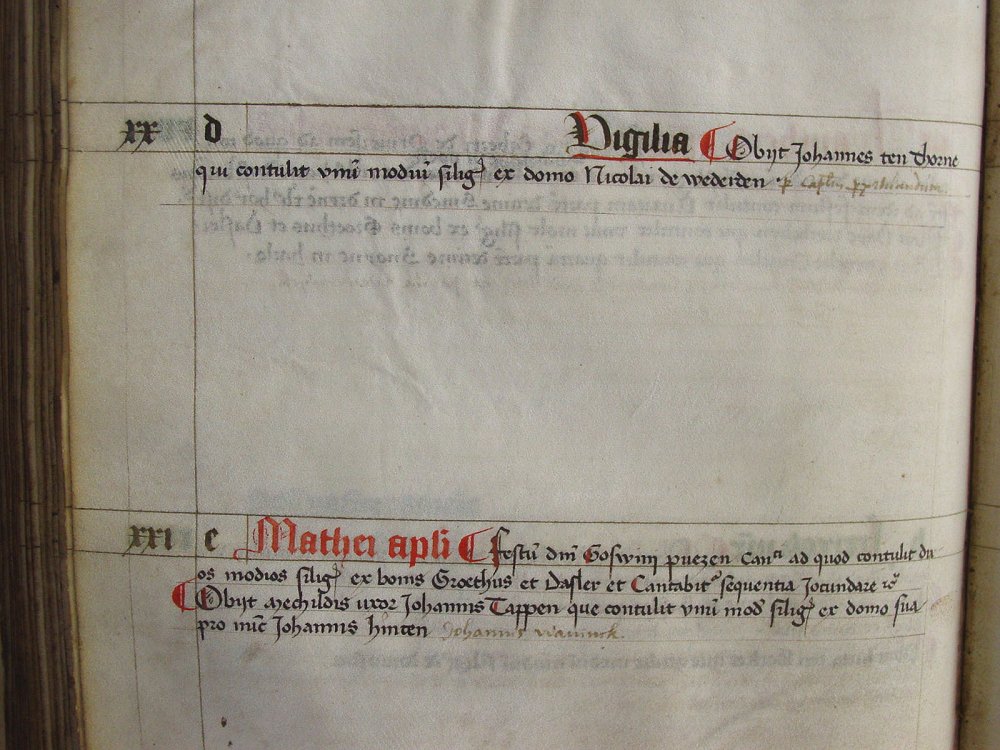 xx d Vigilia Obijt Johannes ten thorne
qui contulit vnū modiū siliḡ ex domo Nicolai de wederden
xxi e Mathei apli Festū dm̄ Goswini puezen Can ad quod contulit du
os modios siliḡ ex bonis Groethus et Dasler et Cantabit sequentia Jocundare
Obijt Mechildis uxor Johannis Tappen que contulit vnū mod siliḡ ex domo sua
pro nūc Johannis hinten Johannis